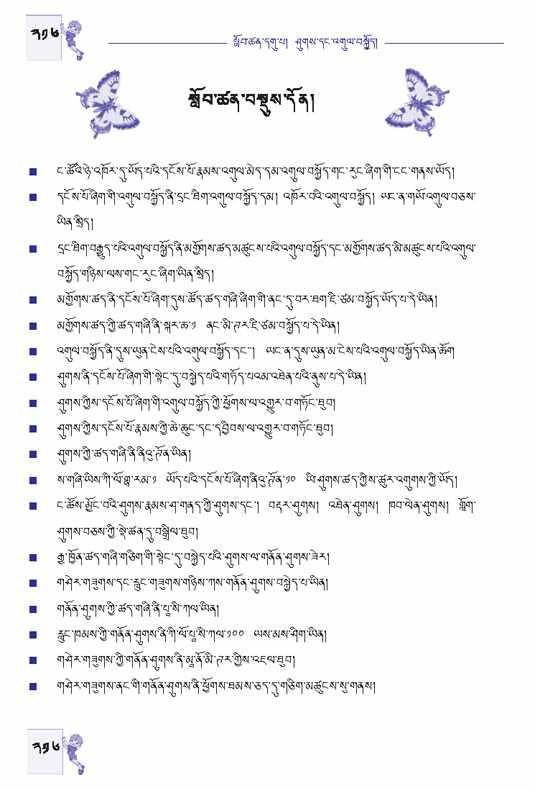 ༢༡༤
སློབ་ཚན་དགུ་པ། ཤུགས་དང་འགུལ་བསྐྱོད།
སློབ་ཚན་བསྡུས་དོན།
ང་ཚོའི་ཉེ་འཁོར་དུ་ཡོད་པའི་དངོས་པོ་རྣམས་འགུལ་མེད་དམ་འགུལ་བསྐྱོད་གང་རུང་ཞིག་གི་ངང་གནས་ཡོད།
དངོས་པོ་ཞིག་གི་འགུལ་བསྐྱོད་ནི་དྲང་ཐིག་འགུལ་བསྐྱོད་དམ། འཁོར་བའི་འགུལ་བསྐྱོད། ཡང་ན་གཡོ་འགུལ་བཅས་
ཡིན་སྲིད།
དྲང་ཐིག་བརྒྱུད་པའི་འགུལ་བསྐྱོད་ནི་མགྱོགས་ཚད་མཚུངས་པའི་འགུལ་བསྐྱོད་དང་མགྱོགས་ཚད་མི་མཚུངས་པའི་འགུལ་
བསྐྱོད་གཉིས་ལས་གང་རུང་ཞིག་ཡིན་སྲིད།
མགྱོགས་ཚད་ནི་དངོས་པོ་ཞིག་དུས་ཚོད་ཚད་གཞི་ཞིག་གི་ནང་དུ་བར་ཐག་ཇི་ཙམ་བསྐྱོད་ཡོད་པ་དེ་ཡིན།
མགྱོགས་ཚད་ཀྱི་ཚད་གཞི་ནི་སྐར་ཆ་༡ ནང་མི་ཊར་ཇི་ཙམ་བསྐྱོད་པ་དེ་ཡིན།
འགུལ་བསྐྱོད་ནི་དུས་ཡུན་ངེས་པའི་འགུལ་བསྐྱོད་དང་། ཡང་ན་དུས་ཡུན་མ་ངེས་པའི་འགུལ་བསྐྱོད་ཡིན་ཆོག
ཤུགས་ནི་དངོས་པོ་ཞིག་གི་སྟེང་དུ་བསྐྱེད་པའི་གཏོད་པའམ་འཐེན་པའི་ནུས་པ་དེ་ཡིན།
ཤུགས་ཀྱིས་དངོས་པོ་ཞིག་གི་འགུལ་བསྐྱོད་ཀྱི་ཕྱོགས་ལ་འགྱུར་བ་གཏོང་ཐུབ།
ཤུགས་ཀྱིས་དངོས་པོ་རྣམས་ཀྱི་ཆེ་ཆུང་དང་དབྱིབས་ལ་འགྱུར་བ་གཏོང་ཐུབ།
ཤུགས་ཀྱི་ཚད་གཞི་ནི་ནིའུ་ཊོན་ཡིན།
ས་གཞི་ཡིས་ཀི་ལོ་གྷ་རམ་༡ ཡོད་པའི་དངོས་པོ་ཞིག་ནིའུ་ཊོན་༡༠ ཡི་ཤུགས་ཚད་ཀྱིས་ཚུར་འགུགས་ཀྱི་ཡོད།
ང་ཚོས་མྱོང་བའི་ཤུགས་རྣམས་ཤ་གནད་ཀྱི་ཤུགས་དང་། བརྡར་ཤུགས། འཐེན་ཤུགས། ཁབ་ལེན་ཤུགས། གློག་
ཤུགས་བཅས་ཀྱི་སྡེ་ཚན་དུ་བསྒྲིལ་ཐུབ།
རྒྱ་ཁྱོན་ཚད་གཞི་གཅིག་གི་སྟེང་དུ་བསྐྱེད་པའི་ཤུགས་ལ་གནོན་ཤུགས་ཟེར།
གཤེར་གཟུགས་དང་རླུང་གཟུགས་གཉིས་ཀས་གནོན་ཤུགས་བསྐྱེད་པ་ཡིན།
གནོན་ཤུགས་ཀྱི་ཚད་གཞི་ནི་པཱ་སི་ཀལ་ཡིན།
རླུང་ཁམས་ཀྱི་གནོན་ཤུགས་ནི་ཀི་ལོ་པཱ་སི་ཀལ་༡༠༠ ཡས་མས་ཤིག་ཡིན།
གཤེར་གཟུགས་ཀྱི་གནོན་ཤུགས་ནི་མཱ་ནོ་མི་ཊར་གྱིས་འཇལ་ཐུབ།
གཤེར་གཟུགས་ནང་གི་གནོན་ཤུགས་ནི་ཕྱོགས་ཐམས་ཅད་དུ་གཅིག་མཚུངས་སུ་གནས།
༢༡༤